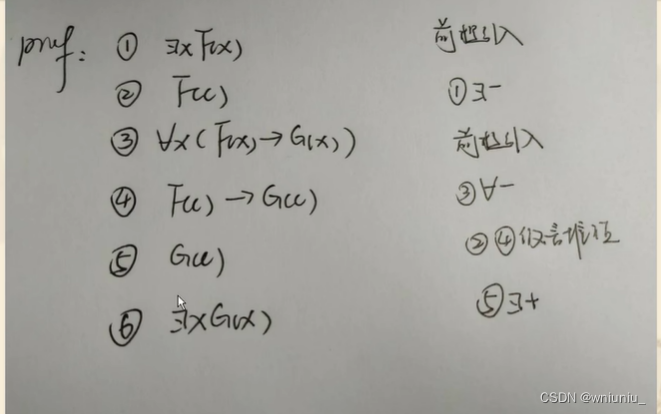 proof: ① ∃xF(x) 前提引入
② F(c) ①∃-
③ ∀x(F(x)→G(x)) 前提引入
④ F(c)→G(c) ③∀-
⑤ G(c) ②④假言推理
⑥ ∃xG(x) ⑤∃+
CSDN @wniuniu_